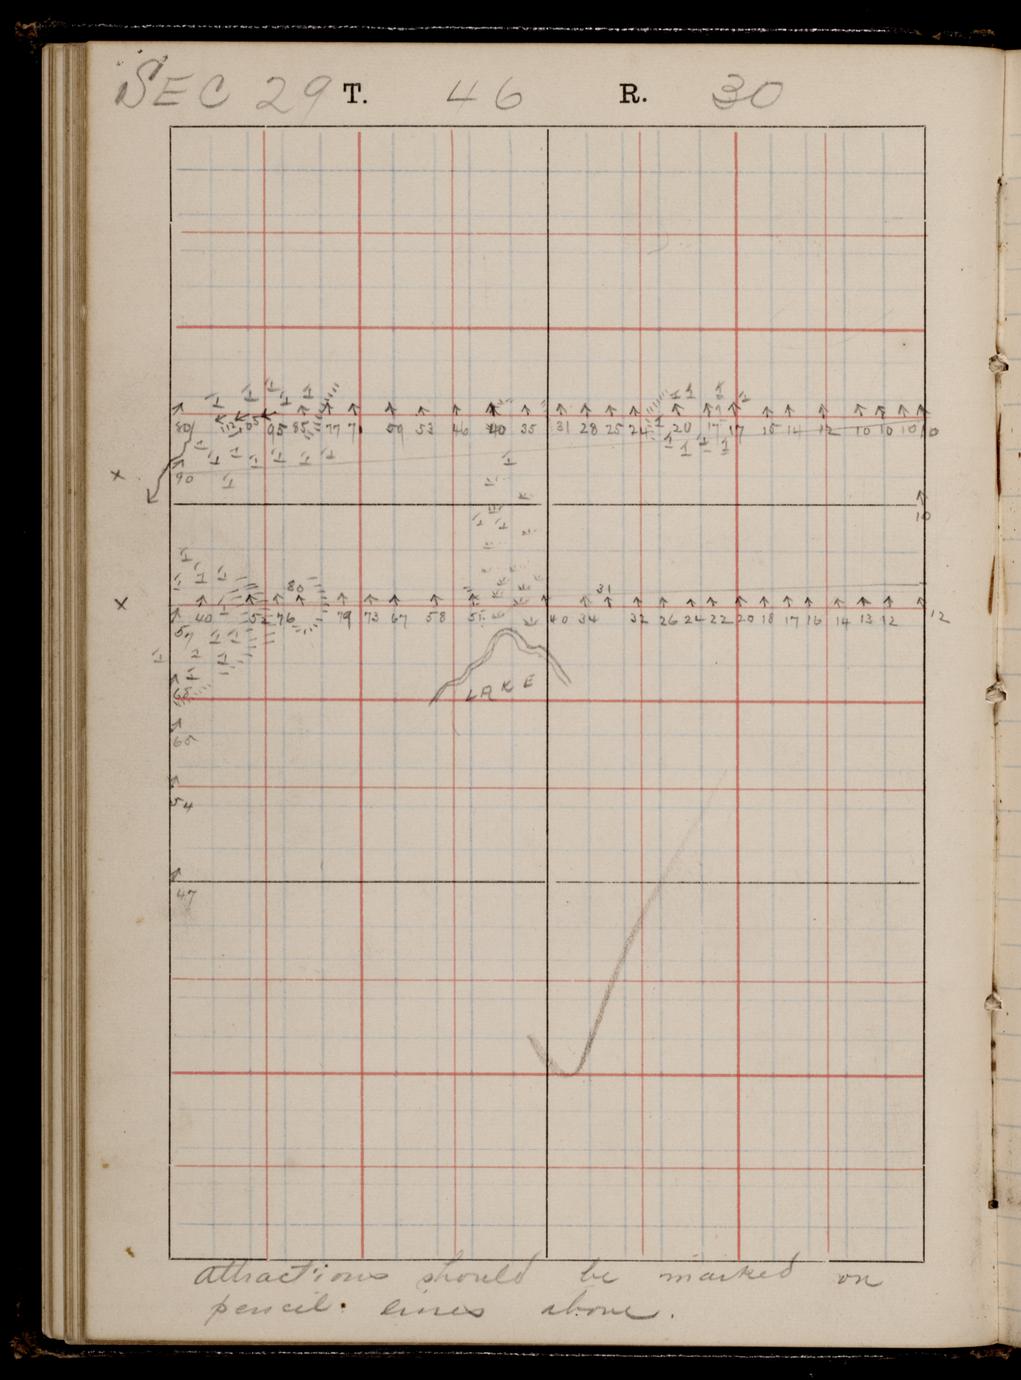 SEC 29 T. 46 R. 30
80 112 105 95 85 77 71 59 53 46 40 35 31 28 25 24 20 17 17 15 14 12 10 10 10 10
x 90
10
80 31
x 40 52 76 79 73 67 58 51 40 34 32 26 24 22 20 18 17 16 14 13 12 12
57
LAKE
65
65
54
47
attractions should be marked on
pencil lines above.